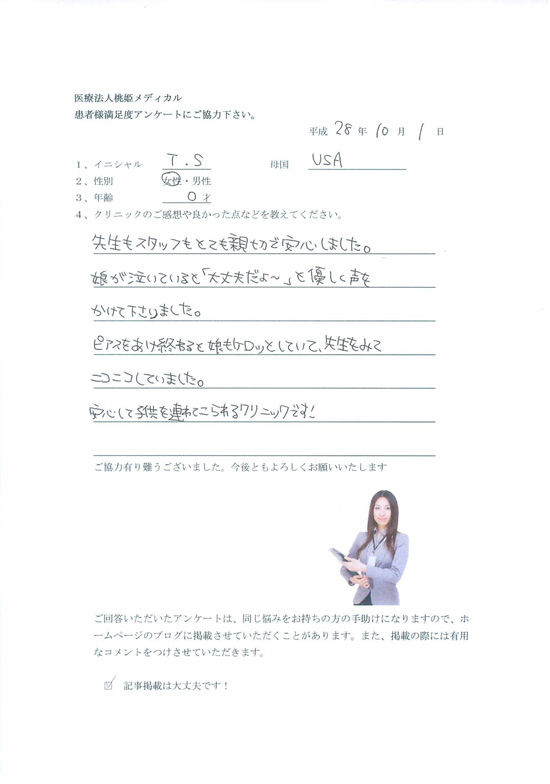 医療法人桃姫メディカル
患者様満足度アンケートにご協力下さい。
平成 28 年 10 月 1 日
1、イニシャル T.S 母国 USA
2、性別 女性・男性
3、年齢 0 才
4、クリニックのご感想や良かった点などを教えてください。
先生もスタッフもとても親切で安心しました。
娘が泣いていると「大丈夫だよ〜」と優しく声を
かけて下さりました。
ピアスをあけ終わると娘もケロッとしていて、先生をみて
ニコニコしていました。
安心して子供を連れてこられるクリニックです!
ご協力有り難うございました。今後ともよろしくお願いいたします
ご回答いただいたアンケートは、同じ悩みをお持ちの方の手助けになりますので、ホ
ームページのブログに掲載させていただくことがあります。また、掲載の際には有用
なコメントをつけさせていただきます。
☑ 記事掲載は大丈夫です!